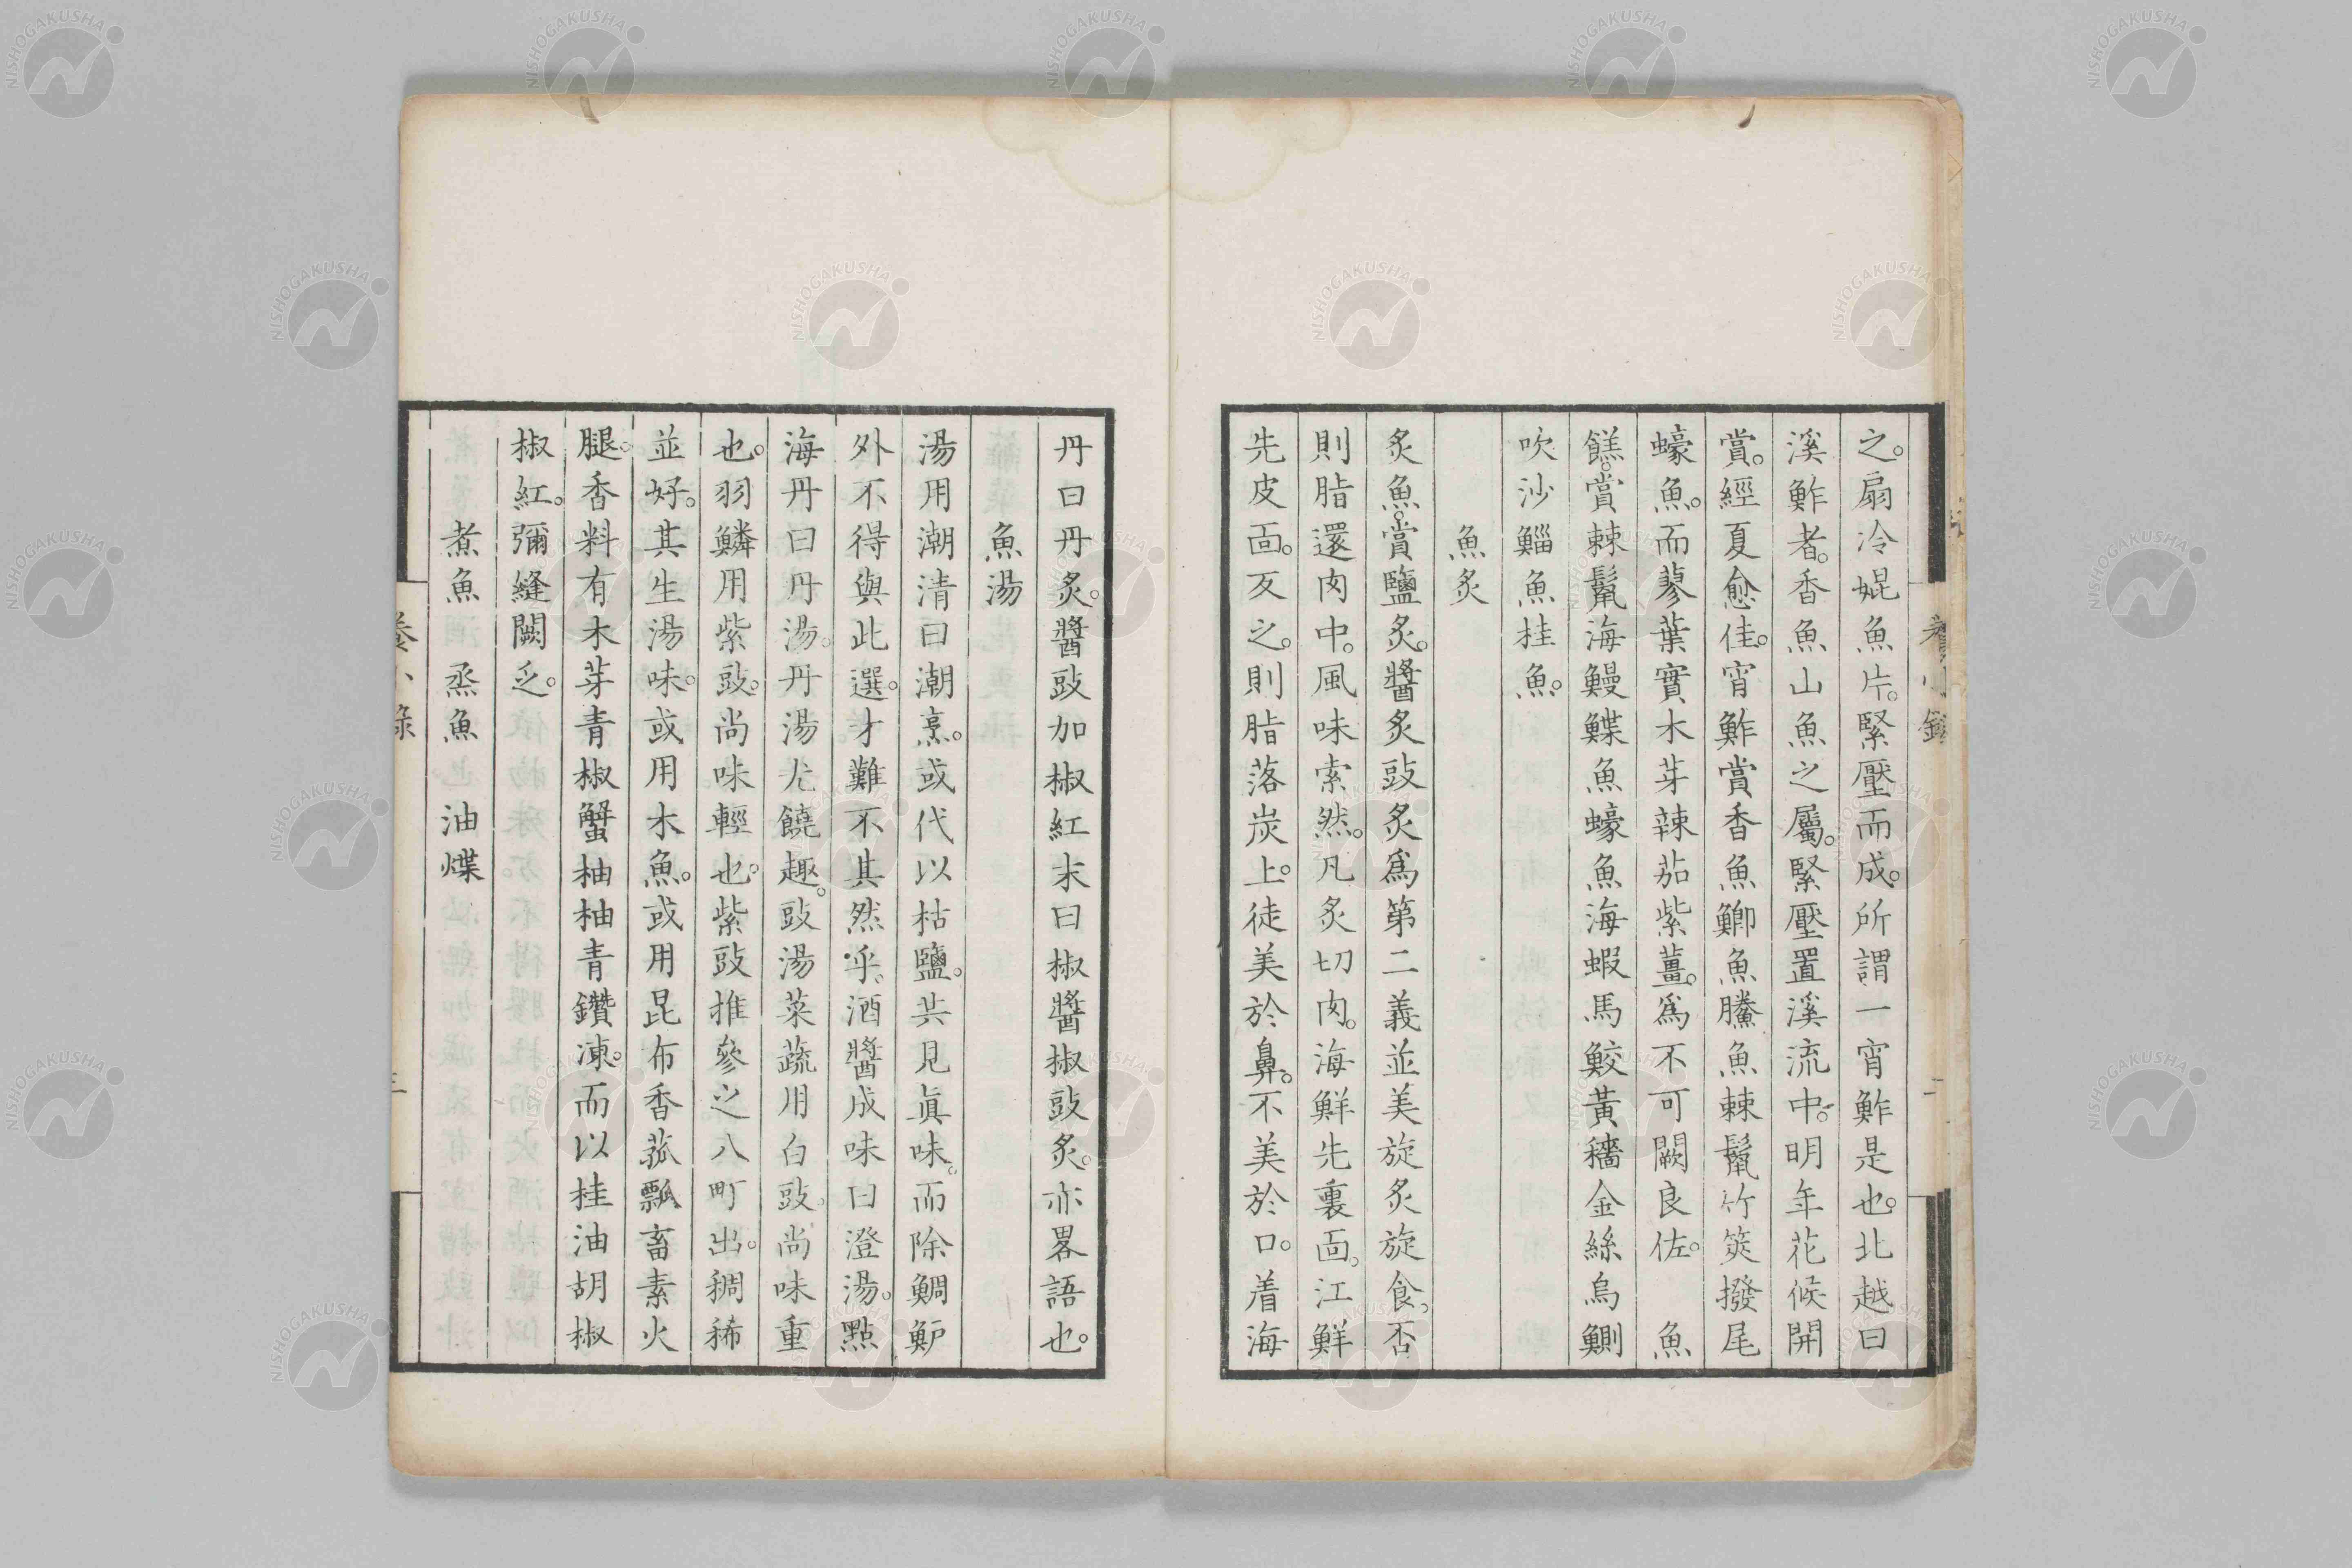 之。扇冷焜魚片。緊壓而成。所謂一宵鮓是也。北越曰
溪鮓者。香魚山魚之屬。緊壓置溪流中。明年花候開
賞。經夏愈佳。宵鮓賞香魚鯽魚騰魚棘鬣竹筴撥尾
蠔魚。而蓼葉實木芽辣茄紫薑。爲不可闕良佐。 魚
饈。賞棘鬣海鰻鰈魚蠔魚海蝦馬鮫黃穡金絲烏鰂
吹沙鯔魚桂魚。
魚炙
炙魚。賞鹽炙。醬炙豉炙爲第二義並美旋炙旋食。否
則脂還肉中。風味索然。凡炙切肉。海鮮先裏面。江鮮
先皮面。反之。則脂落炭上。徒美於鼻。不美於口。着海
丹曰丹炙。醬豉加椒紅末曰椒醬椒豉炙。亦畧語也。
魚湯
湯用潮清曰潮烹。或代以枯鹽。共見眞味。而除鯛鮓
外不得與此選。才難不其然乎。酒醬成味曰澄湯。點
海丹曰丹湯。丹湯尤饒趣。豉湯菜蔬用白豉。尚味重
也。羽鱗用紫豉。尚味輕也。紫豉推參之八町出。稠稀
並好。其生湯味。或用木魚。或用昆布香菰瓢畜素火
腿。香料有木芽青椒蟹柚柚青鑽凍。而以桂油胡椒
椒紅。彌縫闕乏。
煮魚 烝魚 油煠
NISHOGAKUSHA